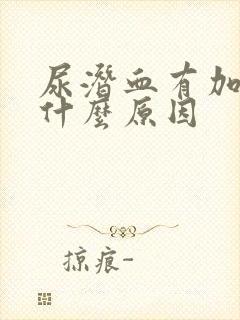 尿潛血有加
什麼原因
掠痕-